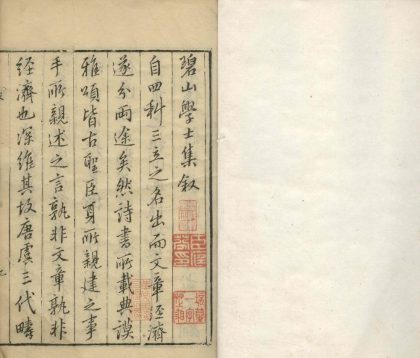 碧山學士集叙
自四科三立之名出而文章经濟
遂分兩途矣然詩書所載典謨
雅頌皆古聖臣賢所親建之事
手所親述之言孰非文章孰非
經濟也深維其故唐虞三代疇